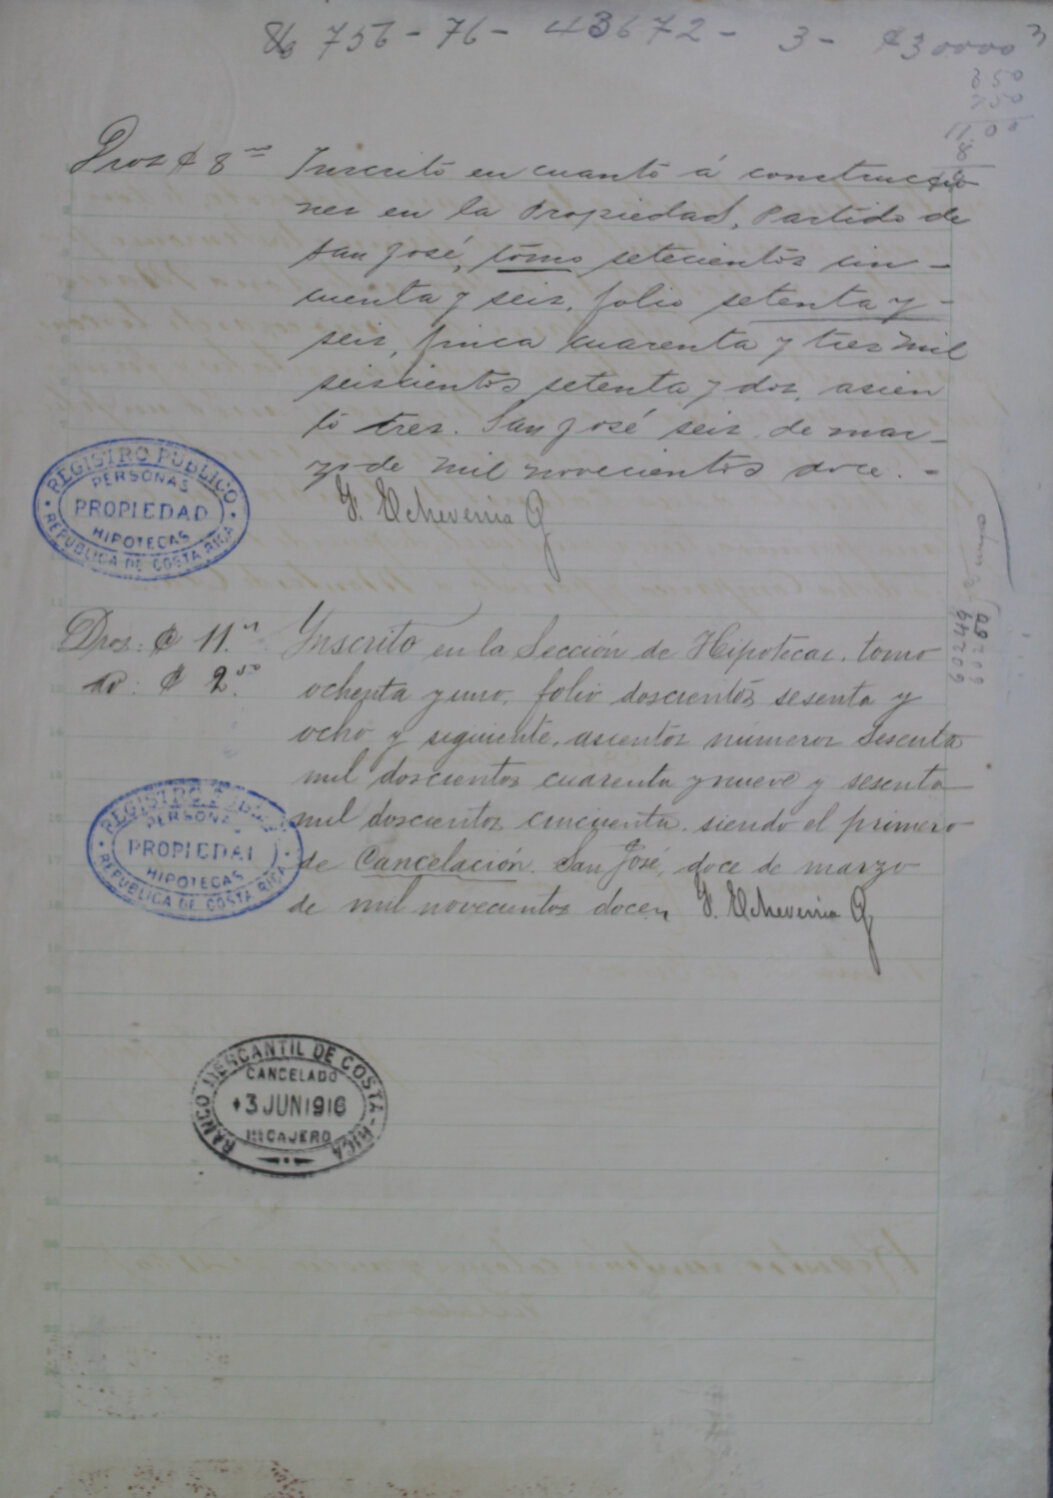 756 - 76 - 43672 - 3 - ₡30000
250
250
11.00
8
Dros ₡ 8
Inscrito en cuanto á construccio
nes en la Propiedad, Partido de
San José, tomo setecientos cin-
cuenta y seis, folio setenta y-
seis, finca cuarenta y tres mil
seiscientos setenta y dos, asien
to tres. San José seis de mar-
zo de mil novecientos doce.-
F. Echeverria
REGISTRO PUBLICO
PERSONAS
PROPIEDAD
HIPOTECAS
REPUBLICA DE COSTA RICA
Dros: ₡ 11.
₡ 2.50
Inscrito en la Sección de Hipotecas, tomo
ochenta y uno, folio doscientos sesenta y
ocho y siguiente, asientos números sesenta
mil doscientos cuarenta y nueve y sesenta
mil doscientos cincuenta, siendo el primero
de Cancelación. San José, doce de marzo
de mil novecientos doce,, F. Echeverria
60249
60250
REGISTRO PUBLICO
PERSONA
PROPIEDAD
HIPOTECAS
REPUBLICA DE COSTA RICA
BANCO MERCANTIL DE COSTA-RICA
CANCELADO
3 JUN 1916
CAJERO